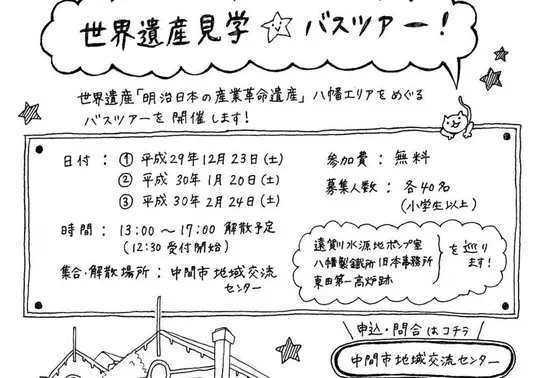 世界遺産見学☆バスツアー!
世界遺産「明治日本の産業革命遺産」八幡エリアをめぐる
バスツアーを開催します!
日付:① 平成29年12月23日(土)
② 平成30年1月20日(土)
③ 平成30年2月24日(土)
時間:13:00〜17:00 解散予定
(12:30 受付開始)
集合・解散場所:中間市地域交流
センター
参加費:無料
募集人数:各40名
(小学生以上)
遠賀川水源地ポンプ室
八幡製鐵所旧本事務所
東田第一高炉跡
を巡り
ます!
申込・問合はコチラ
中間市地域交流センター